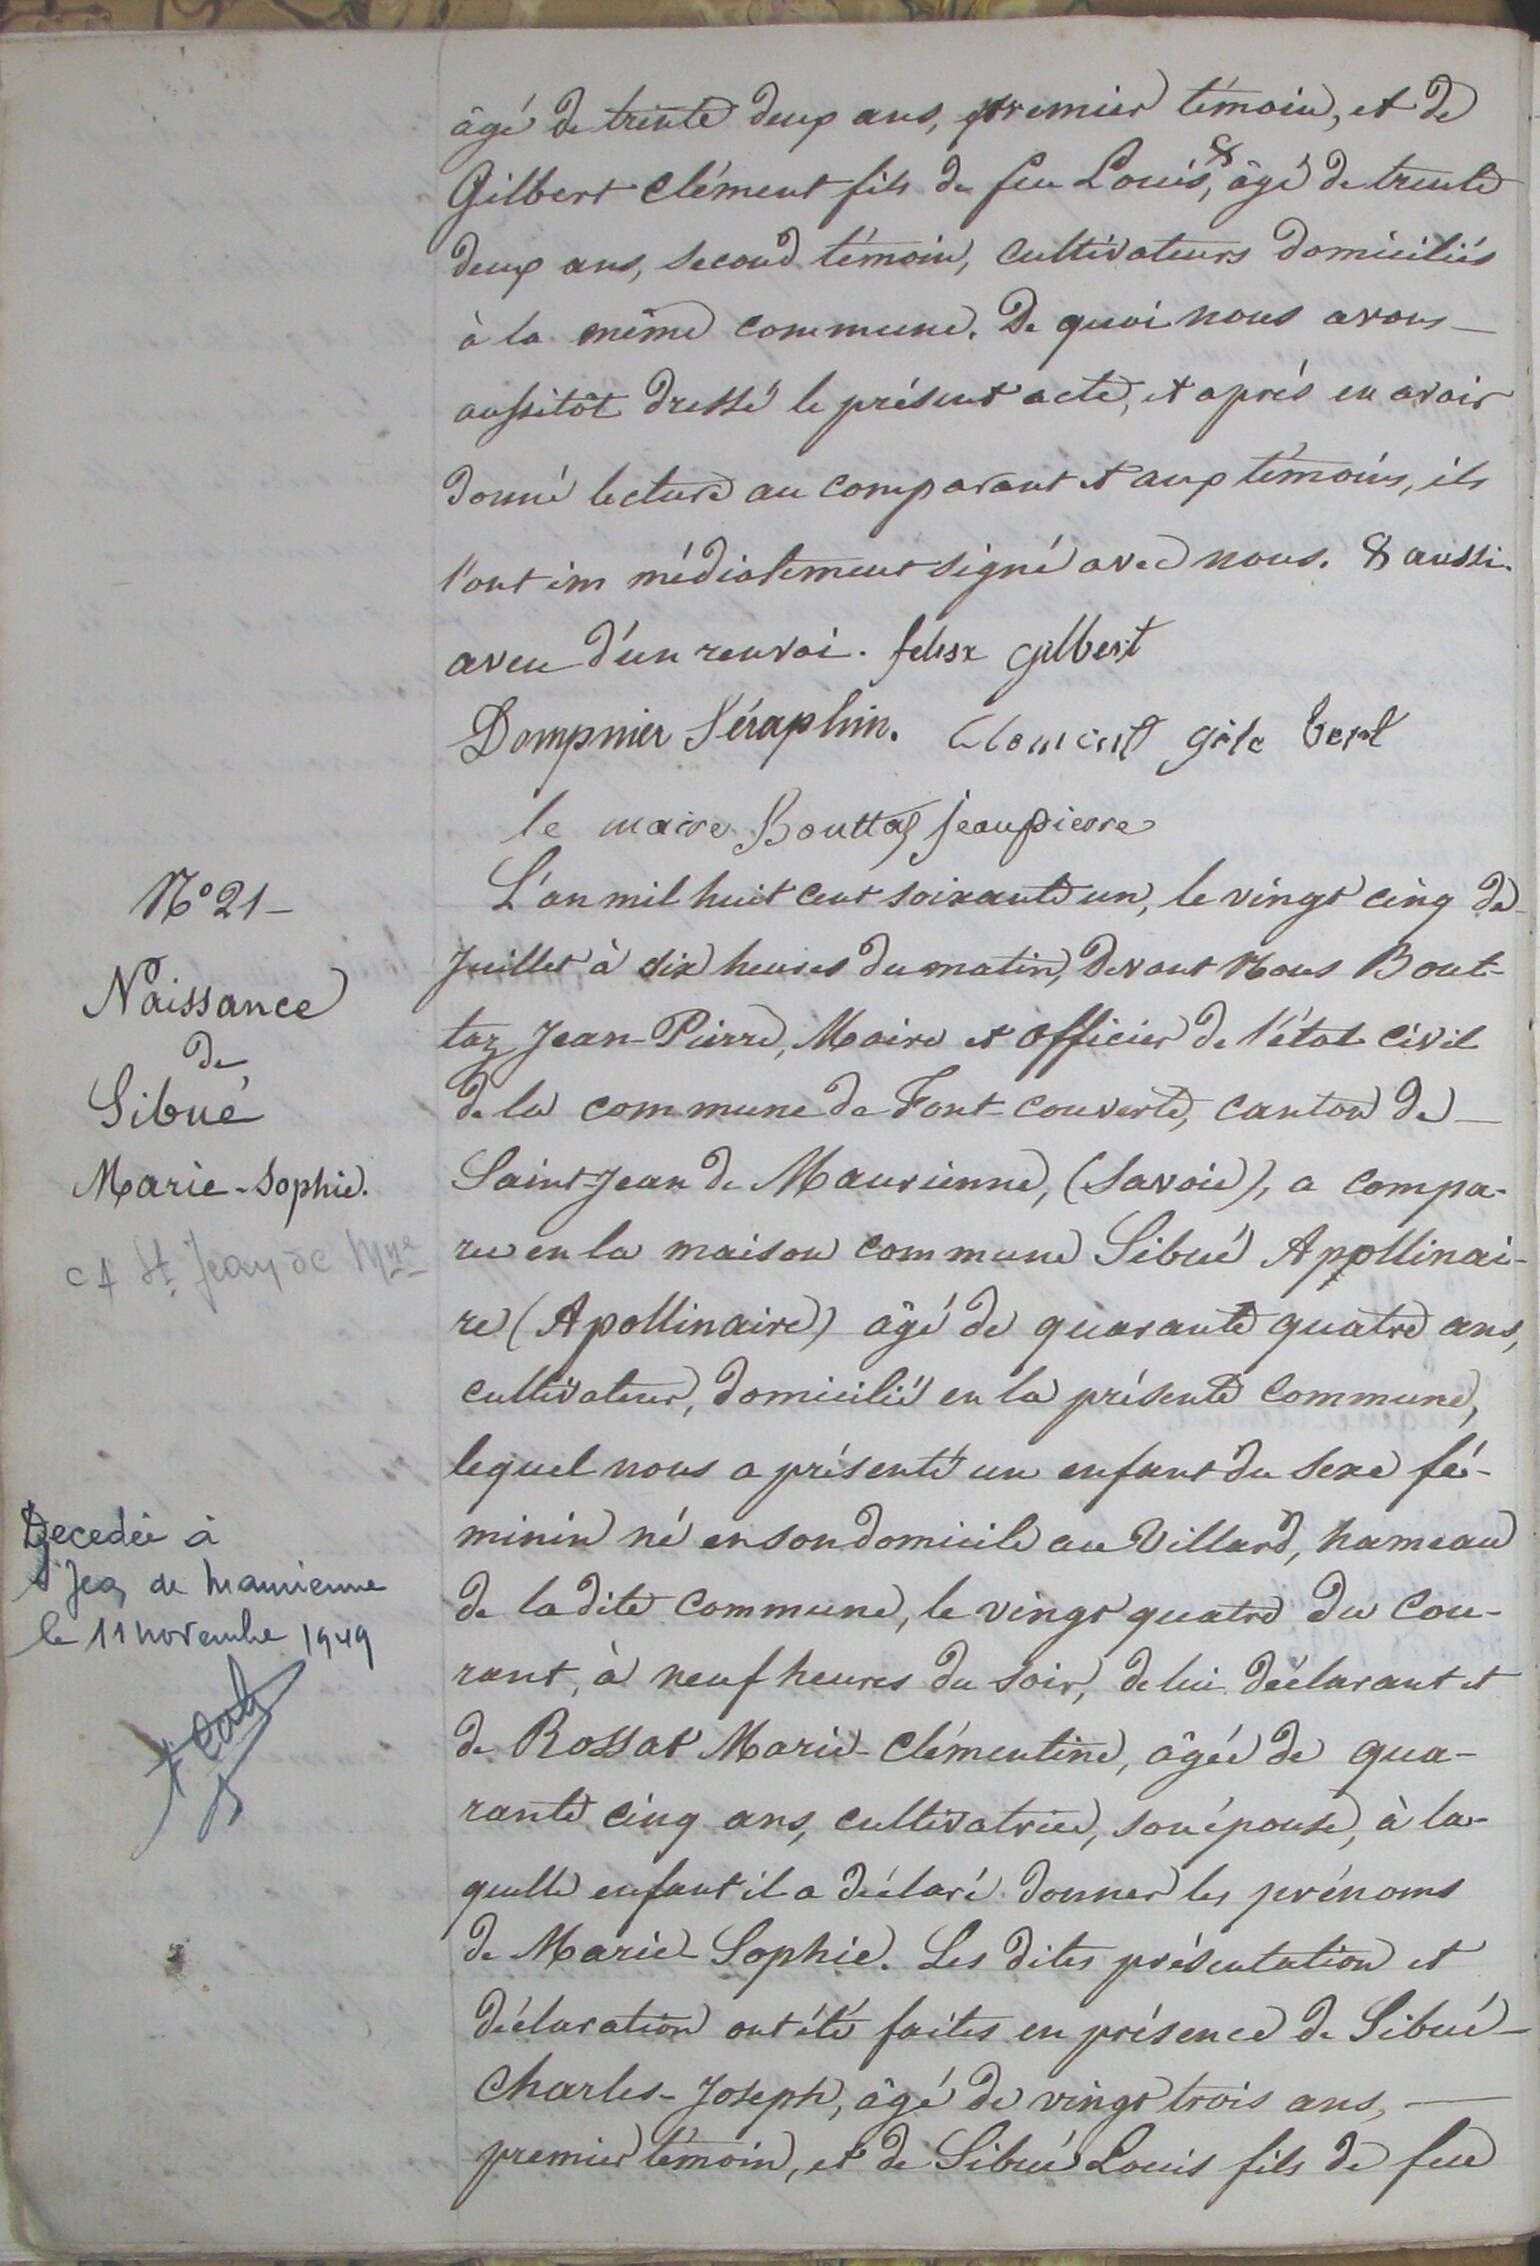 âgé de trente deux ans, premier témoin, et de
Gilbert Clément fils de feu Louis, & âgé de trente
deux ans, second témoin, cultivateurs domiciliés
à la même commune. De quoi nous avons
aussitôt dressé le présent acte, et après en avoir
donné lecture au comparant et aux témoins, ils
l'ont im médiatement signé avec nous. & aussi.
aveu d'un renvoi. felix gilbert
Dompnier Séraphin. Clement gile bert
le maire Bouttaz jean pierre
N° 21
Naissance
de
Sibué
Marie-Sophie.
St Jean de Mne
Decedée à
St Jean de Maurienne
le 11 novembre 1949
L'an mil huit cent soixante un, le vingt cinq de
Juillet à dix heures du matin, devant Nous Bout-
taz Jean-Pierre, Maire et officier de l'état civil
de la commune de Font couverte, canton de
Saint-Jean de Maurienne, (Savoie), a compa-
ru en la maison commune Sibué Appollinai-
re (Apollinaire) âgé de quarante quatre ans,
cultivateur, domicilié en la présente commune,
lequel nous a présenté un enfant du sexe fé-
minin né en son domicile au Villard, hameau
de la dite commune, le vingt quatre du cou-
rant, à neuf heures du soir, de lui déclarant et
de Rossat Marie-Clémentine, âgée de qua-
rante cinq ans, cultivatrice, son épouse, à la-
quelle enfant il a déclaré donner les prénoms
de Marie-Sophie. Les dites présentation et
déclaration ont été faites en présence de Sibué
Charles-Joseph, âgé de vingt trois ans,
premier témoin, et de Sibué Louis fils de feu